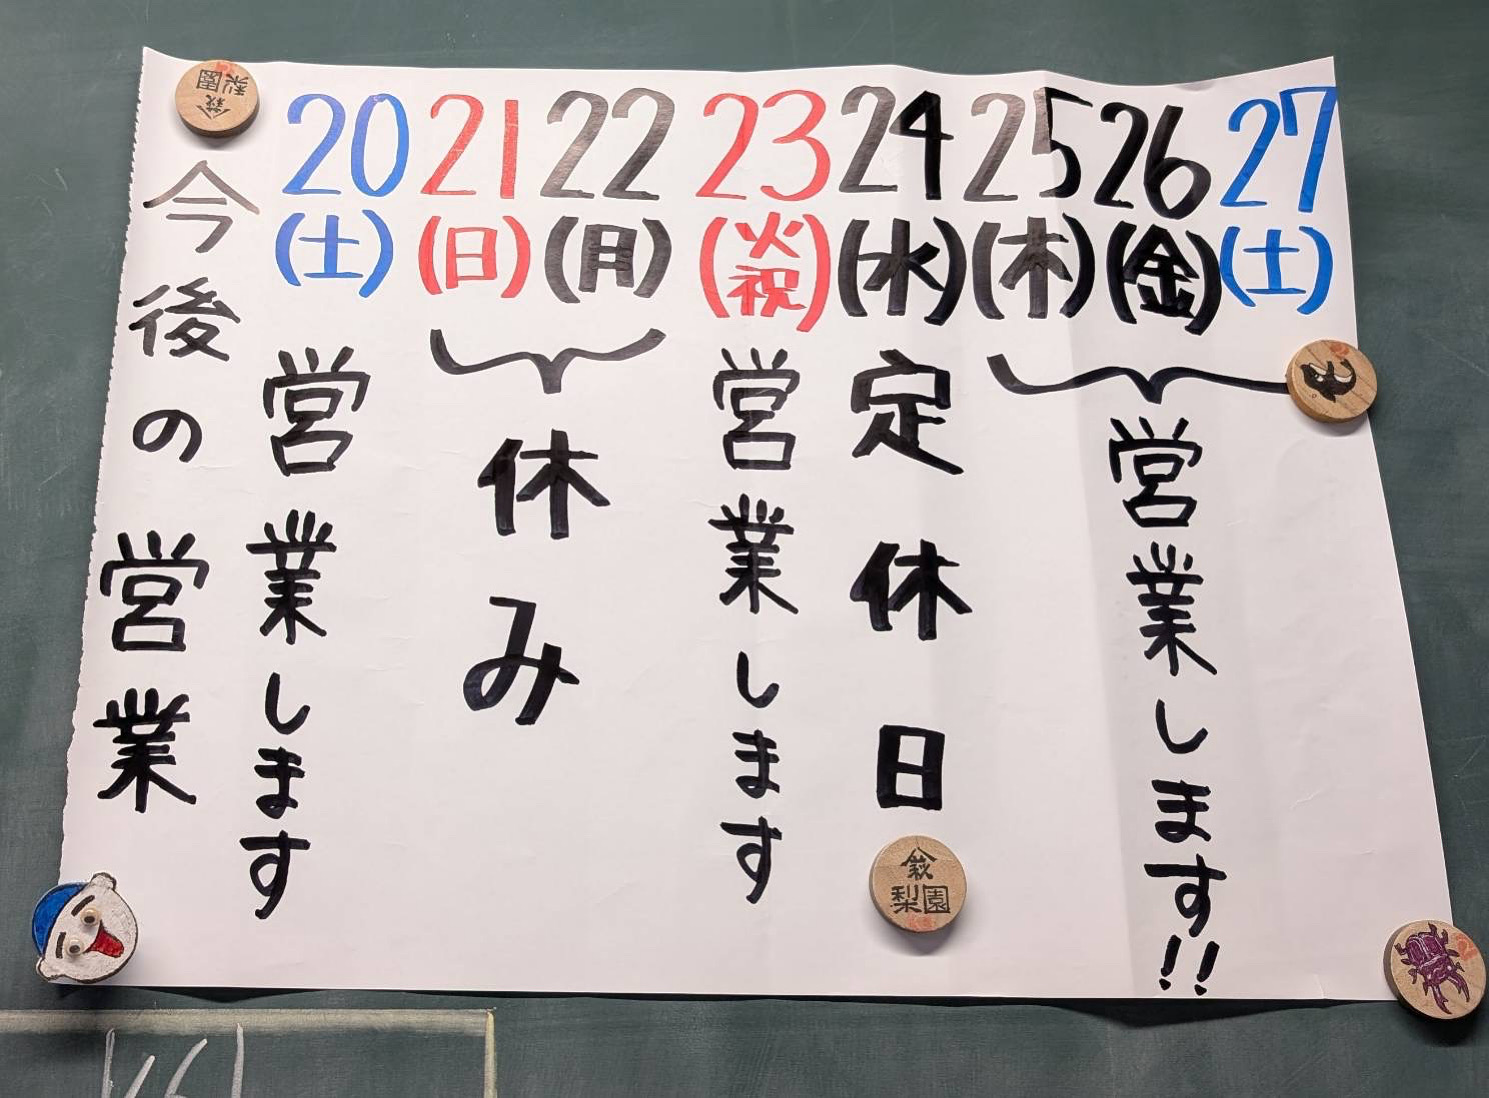 今後の営業
20 21 22 23 24 25 26 27
(土) (日) (月) (火祝) (水) (木) (金) (土)
営業します
休み
営業します
定休日
営業します!!
萩
梨園
萩
梨園